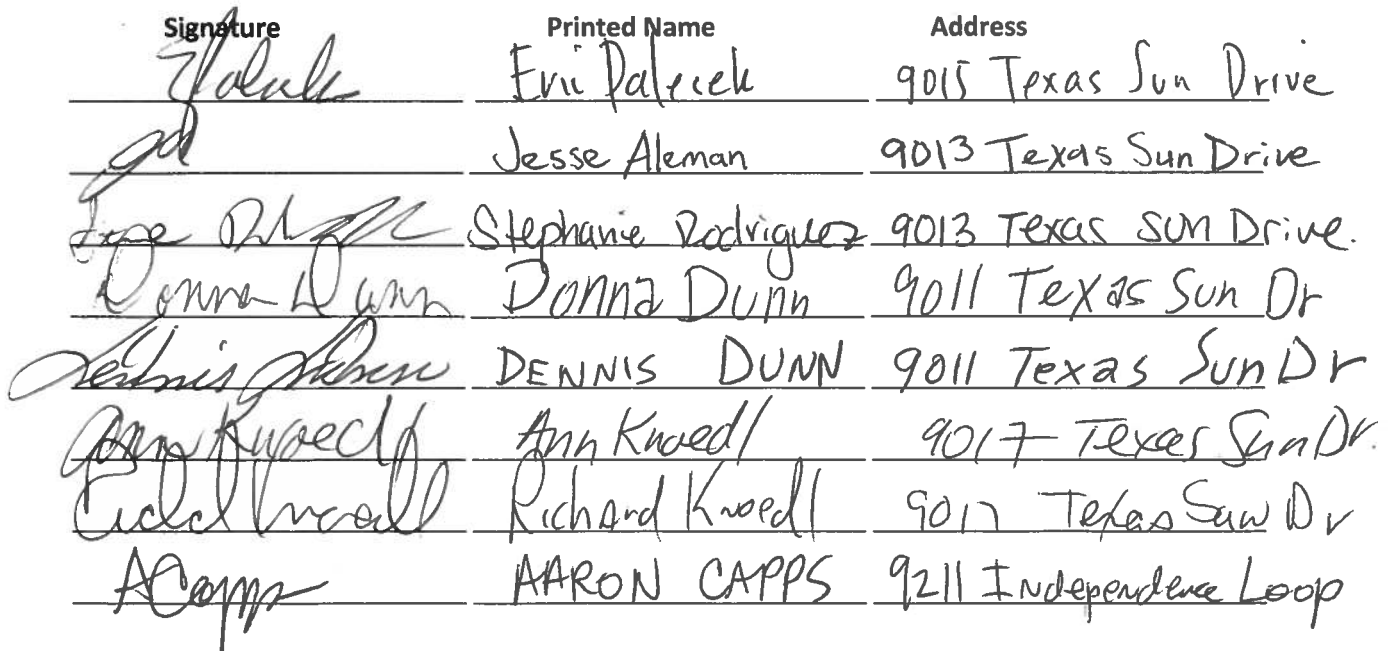 Signature Printed Name Address
Eric Palecek 9015 Texas Sun Drive
Jesse Aleman 9013 Texas Sun Drive
Stephanie Rodriguez 9013 Texas SUN Drive.
Donna Dunn Donna Dunn 9011 Texas Sun Dr
Dennis Dunn DENNIS DUNN 9011 Texas Sun Dr
Ann Knoedl Ann Knoedl 9017 Texas Sun Dr.
Richard Knoedl 9017 Texas Sun Dr
ACapps AARON CAPPS 9211 Independence Loop